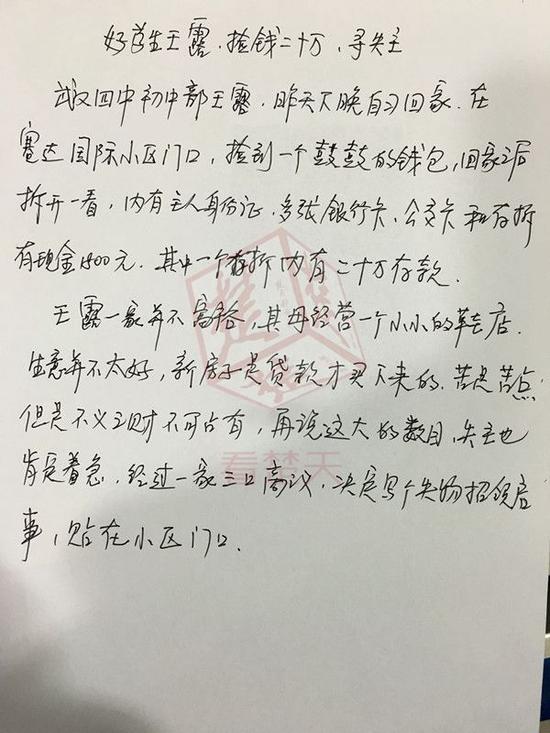 好学生王露.捡钱二十万,寻失主
武汉四中初中部王露.昨天下晚自习回家.在
赛达国际小区门口,捡到一个鼓鼓的钱包,回家之后
拆开一看,内有主人身份证.多张银行卡、公交卡和存折
有现金1500元.其中一个存折内有二十万存款.
王露一家并不富裕,其母经营一个小小的鞋店.
生意并不太好,新房子是贷款才买下来的.苦是苦点
但是不义之财不可占有,再说这大的数目,失主也
肯定着急.经过一家三口商议,决定写个失物招领启
事,贴在小区门口.
看楚天